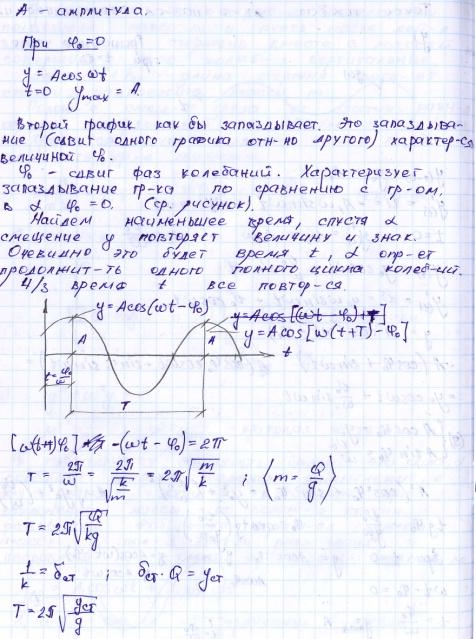 A – амплитуда.
При φ₀=0
y = Acos ωt
t=0 ymax = A.
Второй график как бы запаздывает. Это запаздыва-
ние (сдвиг одного графика отн-но другого) характер-ся
величиной φ₀.
φ₀ – сдвиг фаз колебаний. Характеризует
запаздывание гр-ка по сравнению с гр-ом,
в α φ₀=0. (ср. рисунок).
Найдем наименьшее время, спустя α
смещение y повторяет величину и знак.
Очевидно это будет время t, α опр-ет
продолжит-ть одного полного цикла колеб-ий.
Ч/з время t все повтор-ся.
y=Acos(ωt-φ₀)
y=Acos[(ωt-φ₀)+T]
y=Acos[ω(t+T)-φ₀]
A
A
t
t=φ₀/ω
T
[ω(t+T)φ₀] -(ωt-φ₀)=2π
T = 2π/ω = 2π/√(k/m) = 2π√(m/k) ; ⟨m = Q/g⟩
T = 2π√(Q/kg)
1/k = δст ; δст · Q = yст
T = 2π√(yст/g)